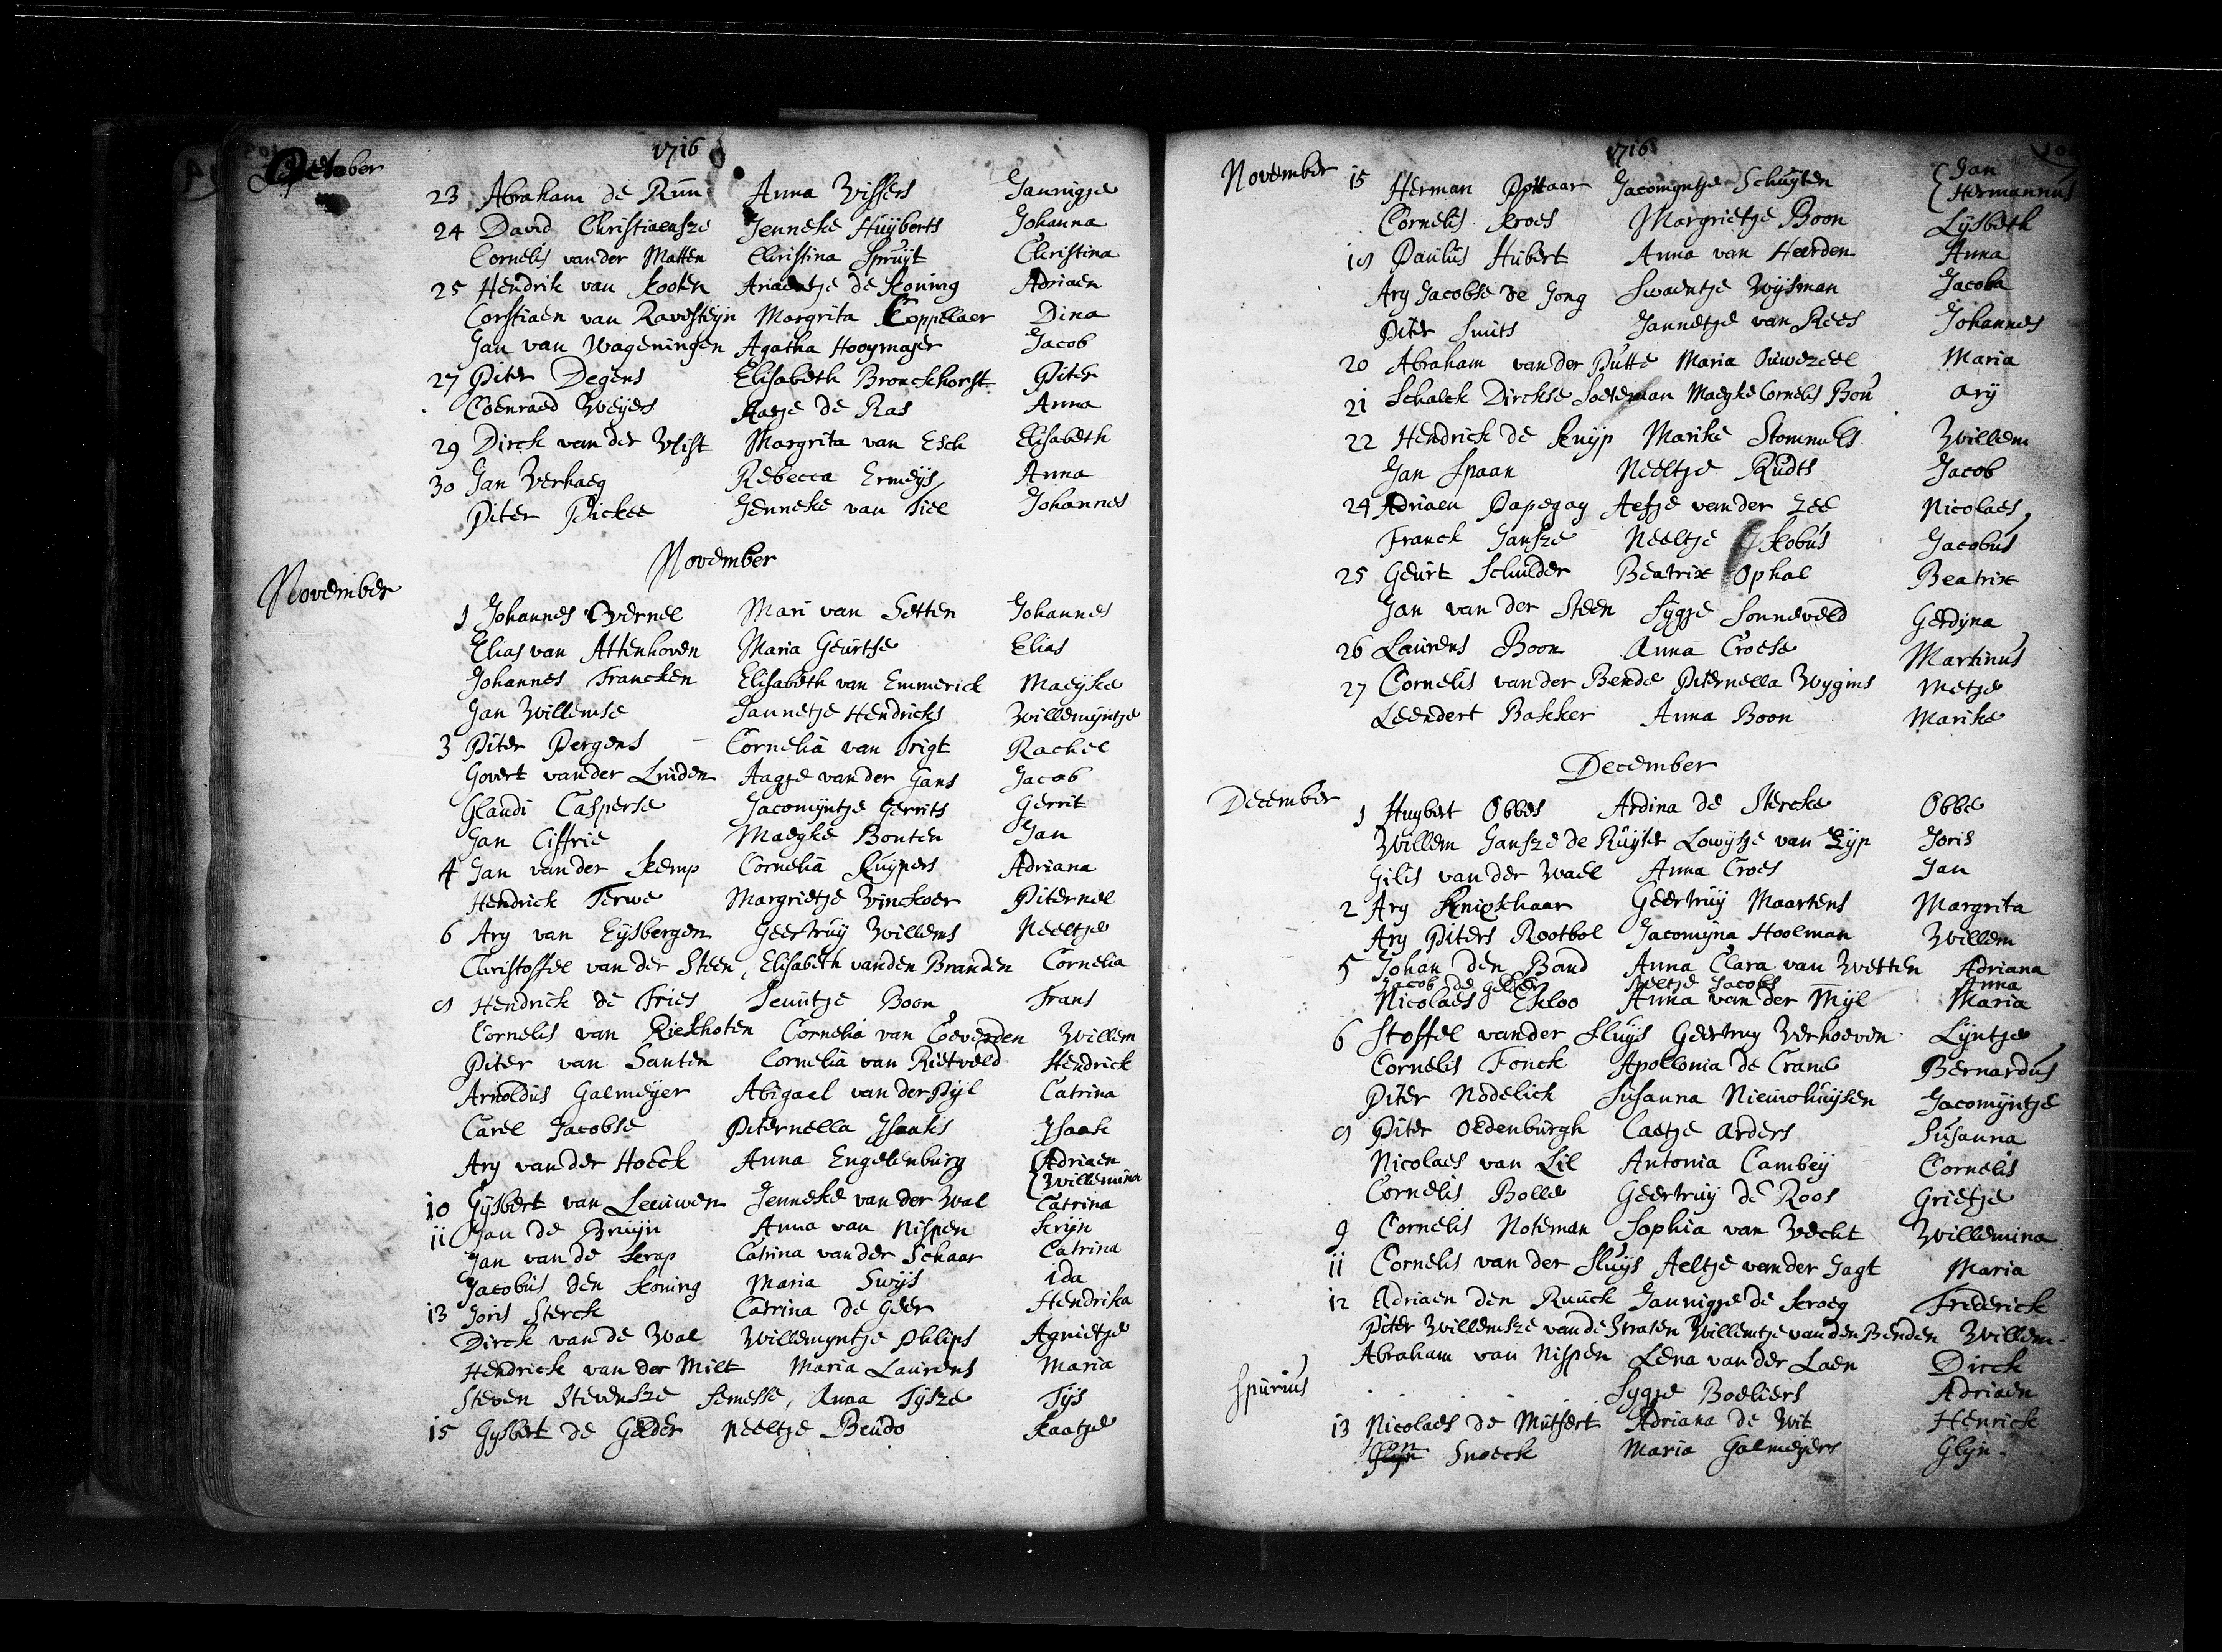 1716
October
23 Abraham de Run Anna Vissers Jannigje
24 David Christiaensze Jenneke Huijberts Johanna
Cornelis van der Matten Christina Spruijt Christina
25 Hendrik van Kooten Ariaentje de Koning Adriaen
Corstiaen van Ravesteijn Margrita Coppelaer Dina
Jan van Wageningen Agatha Hooymajer Jacob
27 Piter Degens Elisabeth Bronckhorst Piter
Coenraed Weijers Aatje de Ras Anna
29 Dirck van der Vlist Margrita van Esch Elisabeth
30 Jan Verhaeg Rebecca Ermeijs Anna
Piter Pickee Jenneke van Tiel Johannes
November
November
1 Johannes Overnel Mari van Setten Johannes
Elias van Attenhoven Maria Geurtse Elias
Johannes Francken Elisabeth van Emmerick Maeijke
Jan Willemse Jannetje Hendricks Willemijntje
3 Piter Pergens Cornelia van Trigt Rachel
Govert van der Linden Aagje van der Gans Jacob
Glaudi Casperse Jacomijntje Gerrits Gerrit
Jan Ciffrie Maegke Bonten Jan
4 Jan van der Kemp Cornelia Kuijpers Adriana
Hendrick Terwe Margrietje Vinckoer Piternel
6 Ary van Eijsbergen Geertruij Willems Neeltje
Christoffel van der Steen, Elisabeth vanden Branden Cornelia
9 Hendrick de Fries Teuntje Boon Frans
Cornelis van Riekhoten Cornelia van Coeverden Willem
Piter van Santen Cornelia van Rietveld Hendrick
Arnoldus Galmeijer Abigael van der Pijl Catrina
Carel Jacobse Piternella Isaaks Isaak
Ary van der Hoeck Anna Engelenburg Adriaen
Willemina
10 Gijsbert van Leeuwen Jenneke van der Wal Catrina
11 Jan de Bruijn Anna van Nispen Krijn
Jan van de Kerap Catrina van der Schaar Catrina
Jacobus den Koning Maria Swijs ida
13 Joris Sterck Catrina de Geer Hendrika
Dirck van de Wal Willemyntje Philips Agnietje
Hendrick van der Milt Maria Laurens Maria
Steven Stevensze Semesse, Anna Tijsze Tijs
15 Gijsbert de Gelder Neeltje Beudo Kaatje
1716
November 15 Herman Pottaar Jacomyntje Schuijten Jan
Hermannus
Cornelis Kroes Margrietje Boon Lijsbeth
19 Paulus Hubert Anna van Heerden Anna
Ary Jacobse de Jong Swaentje Wijsman Jacoba
Piter Smits Jannetje van Rees Johannes
20 Abraham van der Putte Maria Ouwezeel Maria
21 Schalck Dirckse Soeteman Maegke Cornelis Bou Ary
22 Hendrick de Knijp Marike Stommels Willem
Jan Spaan Neeltje Rudts Jacob
24 Adriaen Papegay Aefje van der Zee Nicolaes
Franck Jansze Neeltje Jkobus Jacobus
25 Geurt Schulder Beatrix Ophal Beatrix
Jan van der Steen Sijgje Sonneveld Gerdijna
26 Laurens Boon Anna Croese Martinus
27 Cornelis van der Bende Piternella Wygins Metje
Leendert Bakker Anna Boon Marike
December
December
1 Huybert Obbes Ardina de Stercke Obbe
Willem Jansze de Ruyter Lowijsje van Zijp Joris
Gilis van der Wael Anna Croes Jan
2 Ary Knipschaar Geertruij Maartens Margrita
Ary Piters Rootbol Jacomijna Hoolman Willem
5 Johan den Boud Anna Clara van Wetten Adriana
Jacob de Gelder Neeltje Jacobs Anna
Nicolaes Ekloo Anna van der Mijl Maria
6 Stoffel vander Sluijs Geertruy Verhoeven Lijntje
Cornelis Fonck Apollonia de Crane Bernardus
Piter Nodelick Susanna Nieuwhuijsen Jacomijntje
9 Piter Oldenburgh Caetje Arders Susanna
Nicolaes van Lil Antonia Cambeij Cornelis
Cornelis Bolle Geertruij de Roos Grietje
9 Cornelis Noteman Sophia van Vecht Willemina
11 Cornelis van der Sluijs Aeltje van der Jagt Maria
12 Adriaen den Ruuck Jannigje de Kroeg Frederick
Piter Willemsze van de Straten Willemtje van den Benden Willem
Abraham van Nispen Lena van der Laen Dirck
Spurius Sygje Boeliers Adriaen
13 Nicolaes de Mutsert Adriana de Wit Henrick
Snoeck Maria Galmeijers Glijn